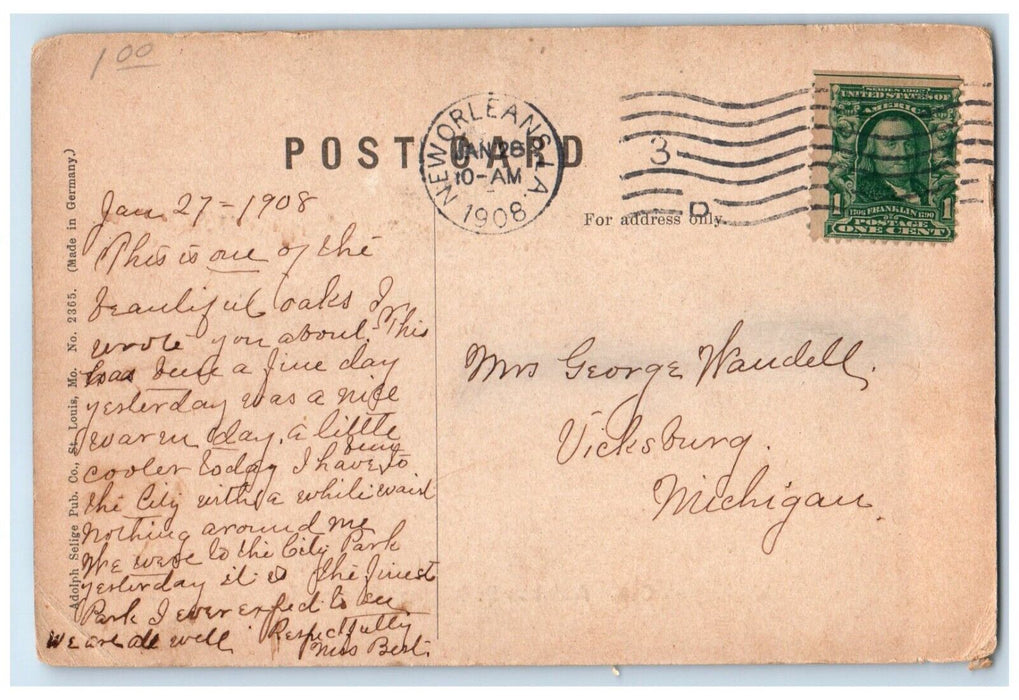 1 00
POST CARD
NEW ORLEANS, LA.
JAN 28
10-AM
1908
3
D
SERIES 1902
UNITED STATES OF
AMERICA
1 1706 FRANKLIN 1790 1
POSTAGE
ONE CENT
For address only.
Adolph Selige Pub. Co., St. Louis, Mo. No. 2365. (Made in Germany.)
Jan 27 - 1908
This is one of the
beautiful oaks I
wrote you about. This
has been a fine day
yesterday was a nice
warm day, a little
cooler today I have been to
the City with a white waist
nothing around me
We were to the City Park
yesterday it is the finest
Park I ever expect to see
we are all well Respectfully
Miss Best.
Mrs George Wandell.
Vicksburg.
Michigan.